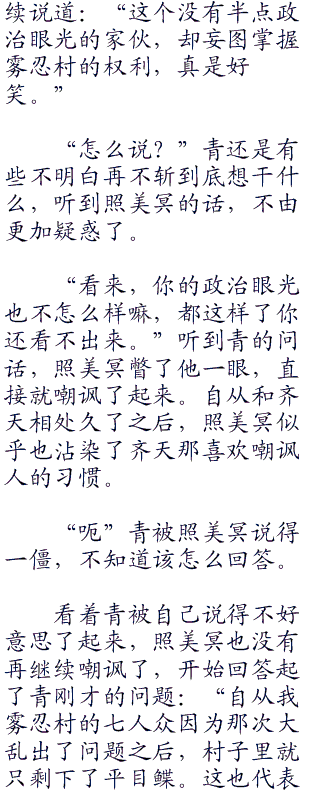 续说道：“这个没有半点政
治眼光的家伙，却妄图掌握
雾忍村的权利，真是好
笑。”
“怎么说？”青还是有
些不明白再不斩到底想干什
么，听到照美冥的话，不由
更加疑惑了。
“看来，你的政治眼光
也不怎么样嘛，都这样了你
还看不出来。”听到青的问
话，照美冥瞥了他一眼，直
接就嘲讽了起来。自从和齐
天相处久了之后，照美冥似
乎也沾染了齐天那喜欢嘲讽
人的习惯。
“呃”青被照美冥说得
一僵，不知道该怎么回答。
看着青被自己说得不好
意思了起来，照美冥也没有
再继续嘲讽了，开始回答起
了青刚才的问题：“自从我
雾忍村的七人众因为那次大
乱出了问题之后，村子里就
只剩下了平目鲽。这也代表